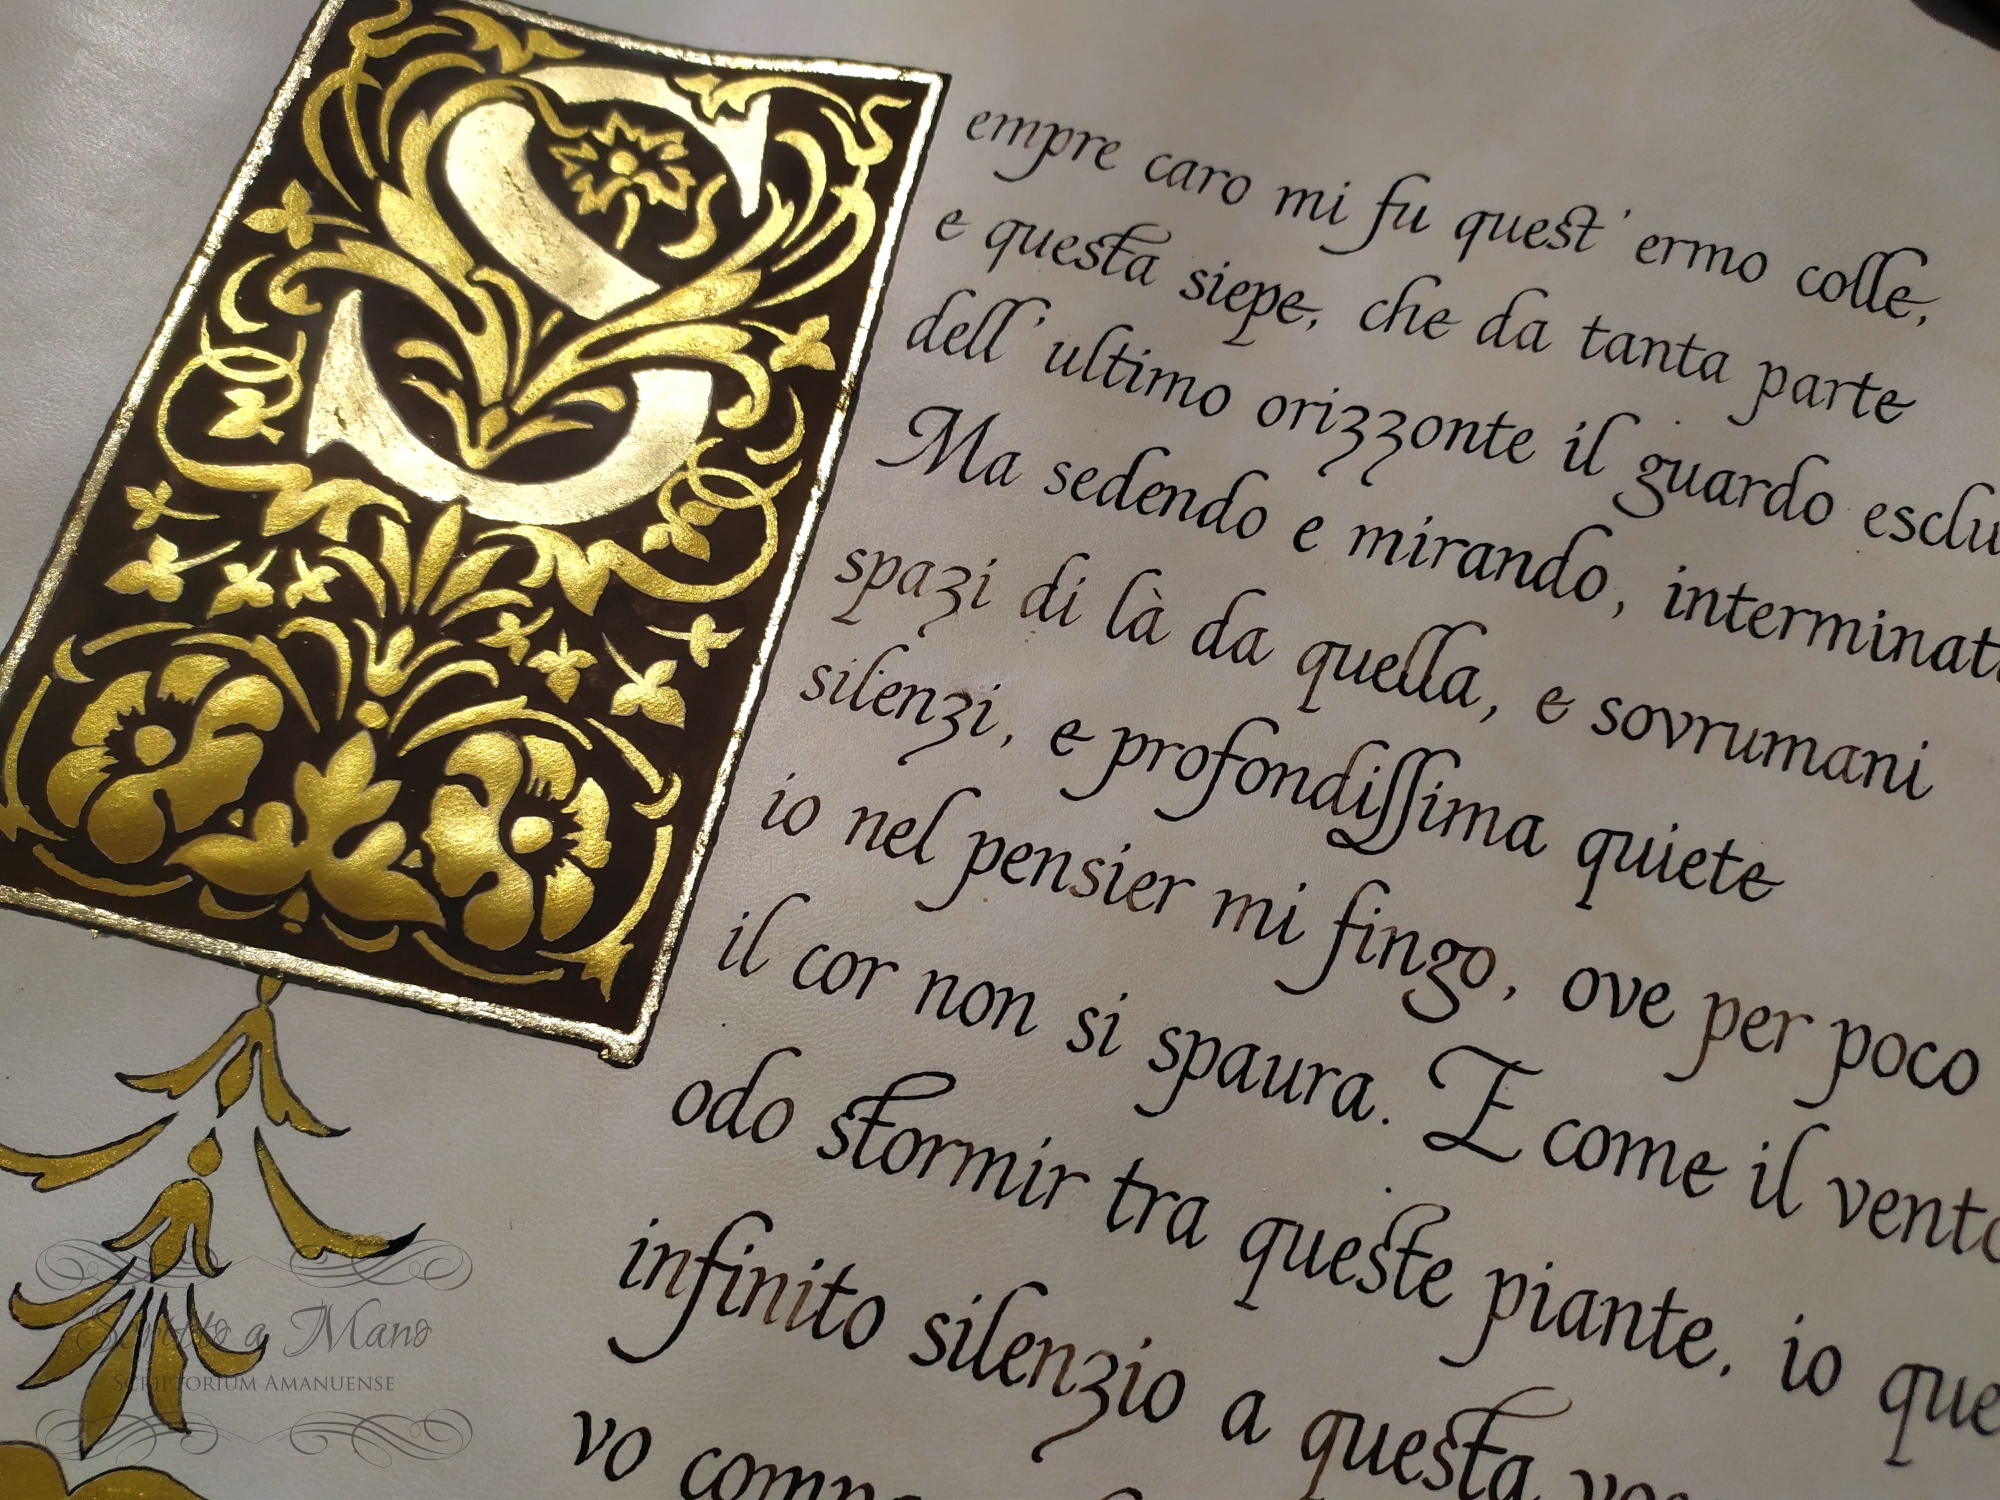 Sempre caro mi fu quest' ermo colle,
e questa siepe, che da tanta parte
dell' ultimo orizzonte il guardo esclu
Ma sedendo e mirando, interminati
spazi di là da quella, e sovrumani
silenzi, e profondissima quiete
io nel pensier mi fingo, ove per poco
il cor non si spaura. E come il vento
odo stormir tra queste piante, io que
infinito silenzio a questa
vo
Scritto a Mano
Scriptorium Amanuense